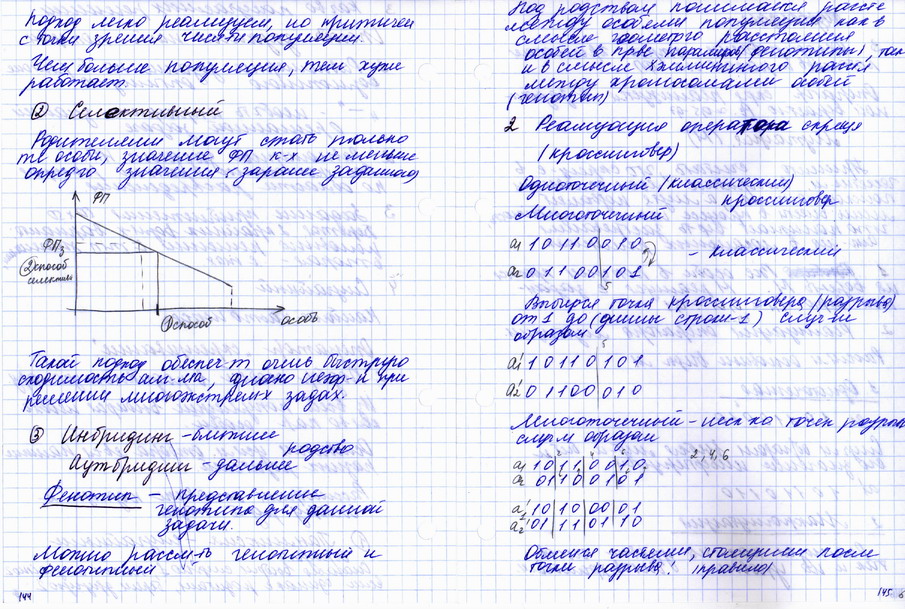 подход легко реализуем, но критичен
с точки зрения числ-ти популяции.
Чем больше популяция, тем хуже
работает.
② Селективный
Родителями могут стать только
те особи, значение ФП к-х не меньше
опред-го значения (заранее заданного)
ФП
ФПз
② способ
селекции
① способ
особь
Такой подход обеспеч-т очень быструю
сходимость алг-ма, однако
решении многоэкстрем-х задач.
③ Инбридинг - ближнее
родство
Аутбридинг - дальнее
Фенотип - представление
генотипа для данной
задачи.
Можно рассм-ть генотипный и
фенотипный
144
Под родством понимается расст-е
между особями популяции как в
смысле геометр-го расстояния
особей в пр-ве параметров (фенотипы), так
и в смысле хэммингого расст-я
между хромосомами особей
(генотип)
2 Реализация оператора скрещ-я
(кроссинговер)
Одноточечный (классический)
кроссинговер
Многоточечный
a₁ 1 0 1 1 0 0 1 0
- классический
a₂ 0 1 1 0 0 1 0 1
5
точка кроссинговера (разрыва)
от 1 до (длины строки-1) случ-м
образом
5
a₁' 1 0 1 1 0 1 0 1
a₂' 0 1 1 0 0 0 1 0
Многоточечный - неск-ко точек разрыва
случ-м образом
2 4 6
2, 4, 6
a₁ 1 0 1 1 0 0 1 0
a₂ 0 1 1 0 0 1 0 1
a₁' 1 0 1 0 0 0 0 1
a₂' 0 1 1 1 0 1 1 0
Обмен частями, стоящими после
точки разрыва! (правило)
145